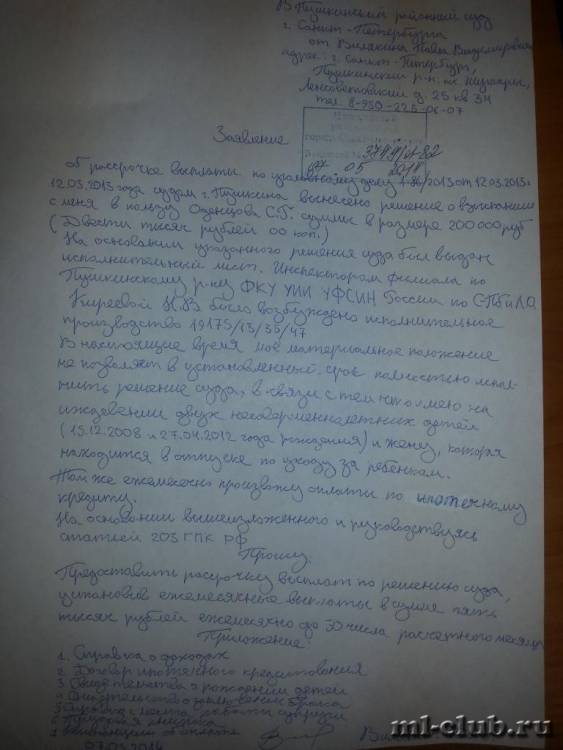 В Пушкинский районный суд
г. Санкт-Петербурга
от
адрес: г. Санкт-Петербург,
Пушкинский р-н. п. Шушары,
Ленсоветовский д. 25 кв 34
тел. 8-950-225-06-07
Заявление
об рассрочке выплаты по уголовному делу 2013 от 12.03.2013г
12.03.2013 года судом г. Пушкина вынесено решение о взыскании
с меня в пользу Оденцова С.Б. сумму в размере 200 000 руб
(Двести тысяч рублей 00 коп.)
На основании указанного решения суда был выдан
исполнительный лист. Инспектором филиала по
Пушкинскому р-ну ФКУ УИИ УФСИН России по СПб и ЛО
Киреевой Н.В было возбуждено исполнительное
производство 19175/13/35/47
В настоящие время мое материальное положение
не позволяет в установленный срок полностью испол-
нить решение суда, в связи с тем что имею на
иждевении двух несовершеннолетних детей
(15.12.2008 и 27.04.2012 года рождения) и жену, которая
находится в отпуске по уходу за ребенком.
Так же ежемесячно произвожу оплаты по ипотечному
кредиту.
На основании вышеизложенного и руководствуясь
статьей 203 ГПК РФ
Прошу:
Предоставить рассрочку выплат по решению суда,
установив ежемесячные выплаты в сумме пять
тысяч рублей ежемесячно до 30 числа расчетного месяца
Приложение:
1. Справка о доходах
2. Договор ипотечного кредитования
3 Свидетельства о рождении детей
4 Свидетельство о заключении брака
5 Справка с места работы супруги
6 Трудовая книжка
ml-club.ru